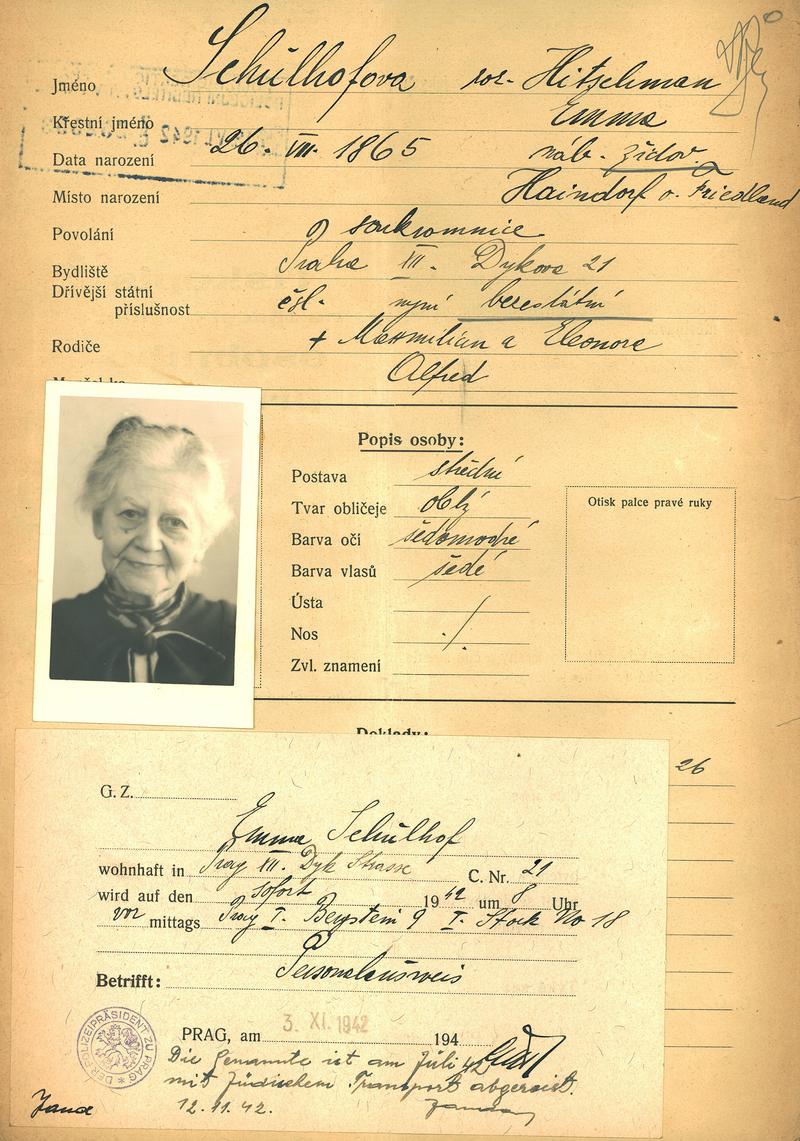 Jméno Schulhofova roz. Hitschman
Křestní jméno Emma
Data narození 26. VII. 1865 náb. židov.
Místo narození Haindorf o. Friedland
Povolání soukromnice
Bydliště Praha XII. Dykova 21
Dřívější státní
příslušnost čsl. nyní bezestátní
Rodiče + Maxmilian a Eleonora
Alfred
Popis osoby:
Postava střední
Tvar obličeje oblý
Barva očí šedomodré
Barva vlasů šedé
Ústa
Nos ./.
Zvl. znamení
Otisk palce pravé ruky
Doklady:
26
G. Z.
Emma Schulhof
wohnhaft in Prag XII. Dyk Strasse C. Nr. 21
wird auf den sofort 1942 um 8 Uhr
vor mittags Prag I. Bergstein 9 I. Stock No 18
Betrifft: Personalausweis
PRAG, am 3. XI. 1942 194
DER POLIZEIPRÄSIDENT ZU PRAG
Die Genannte ist am Juli 42
mit Jüdischem Transport abgereist.
12.11.42.